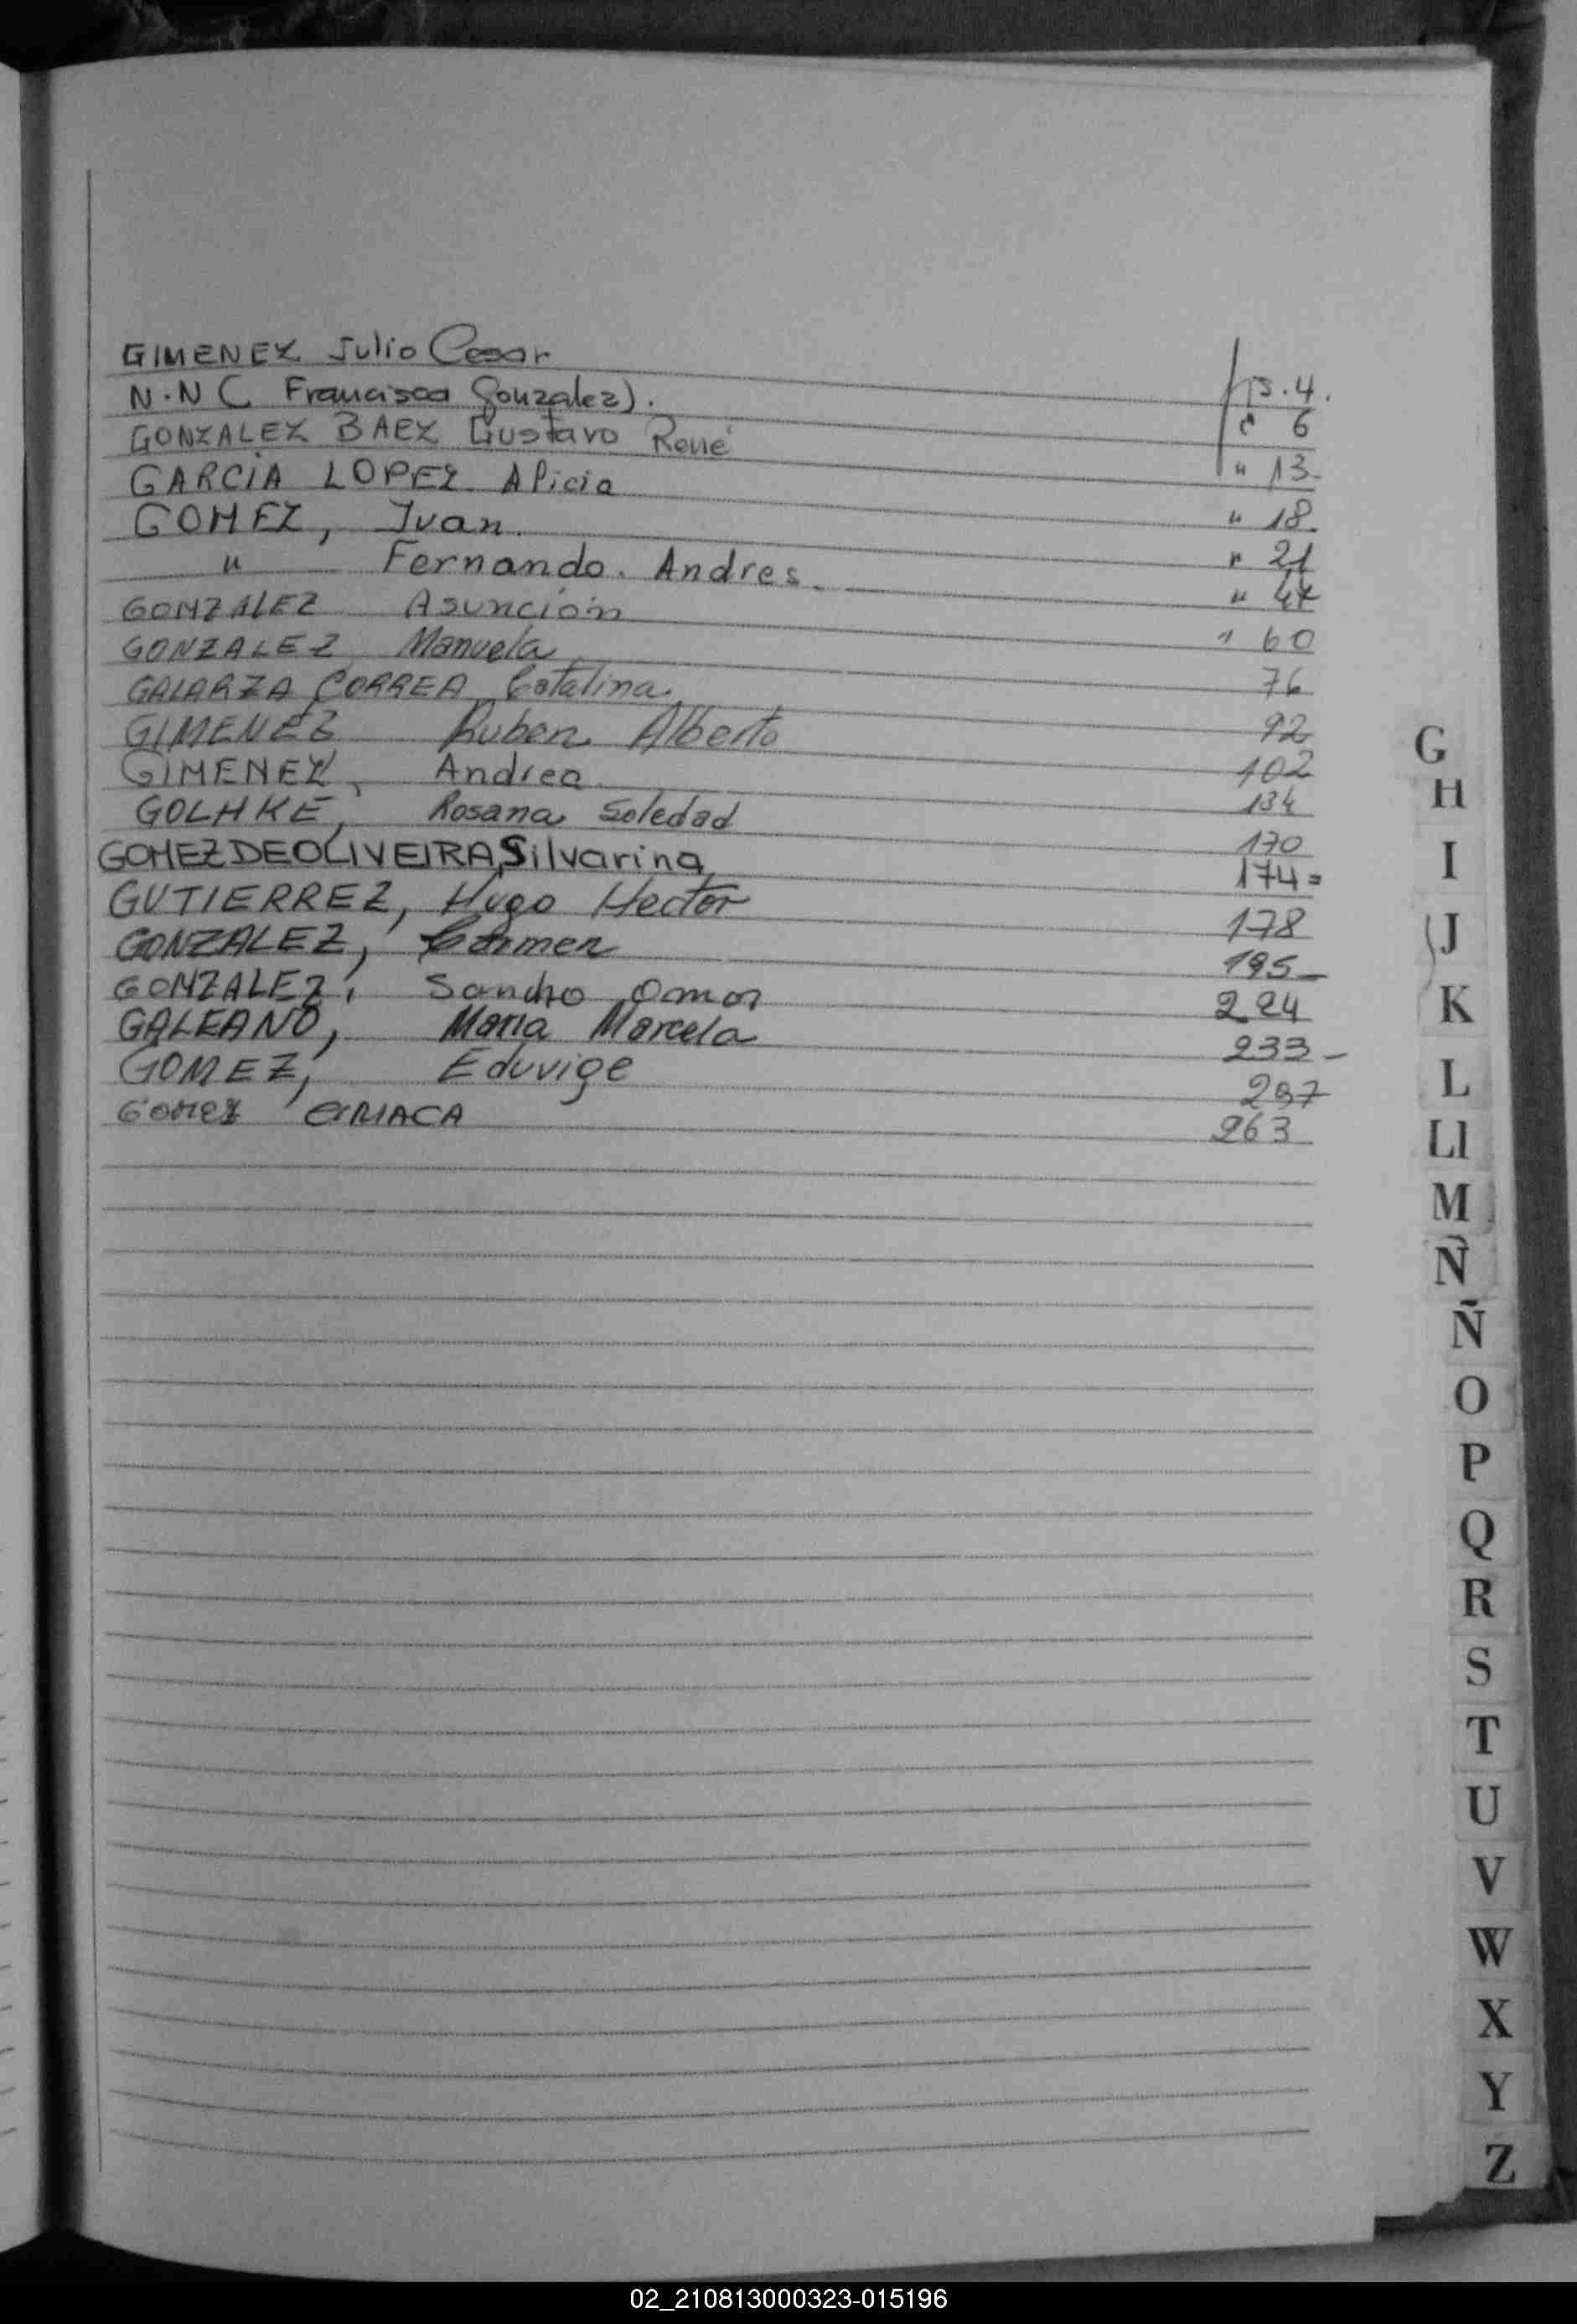 GIMENEZ Julio Cesar fs. 4.
N.N ( Francisca Gonzalez). " 6
GONZALEZ BAEZ Gustavo René " 13
GARCÍA LOPEZ Alicia " 18
GOMEZ, Ivan. " 21
" Fernando. Andres " 47
GONZALEZ Asunción " 60
GONZALEZ Manuela 76
GALARZA CORREA Catalina. 92
GIMENEZ Ruben Alberto 102
GIMENEZ, Andrea 134
GOLHKE, Rosana Soledad 170
GOMEZ DE OLIVEIRA, Silvarina 174=
GUTIERREZ, Hugo Hector 178
GONZALEZ, Carmen 195
GONZALEZ, Sancho Omar 224
GALEANO, Maria Marcela 233
GOMEZ, Eduvige
GOMEZ CIRIACA 263
G
H
I
J
K
L
Ll
M
N
Ñ
O
P
Q
R
S
T
U
V
W
X
Y
Z
02_210813000323-015196